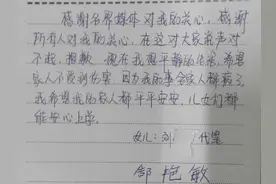 感谢各界媒体对我的关心，感谢
所有人对我的关心，在这对大家说声对
不起，抱歉，现在我想平静的生活，希望
家人不受到伤害，因为我的事全家人都病了，
我希望我的家人都平平安安，儿女们都
能安心上学。
女儿：刘 代笔
邹艳敏